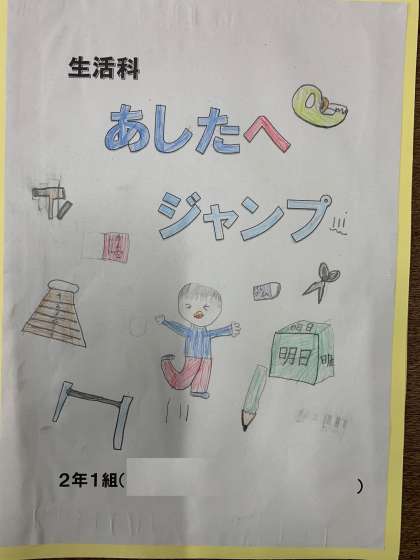 生活科
あしたへ
ジャンプ
明日
明日
2年1組( )